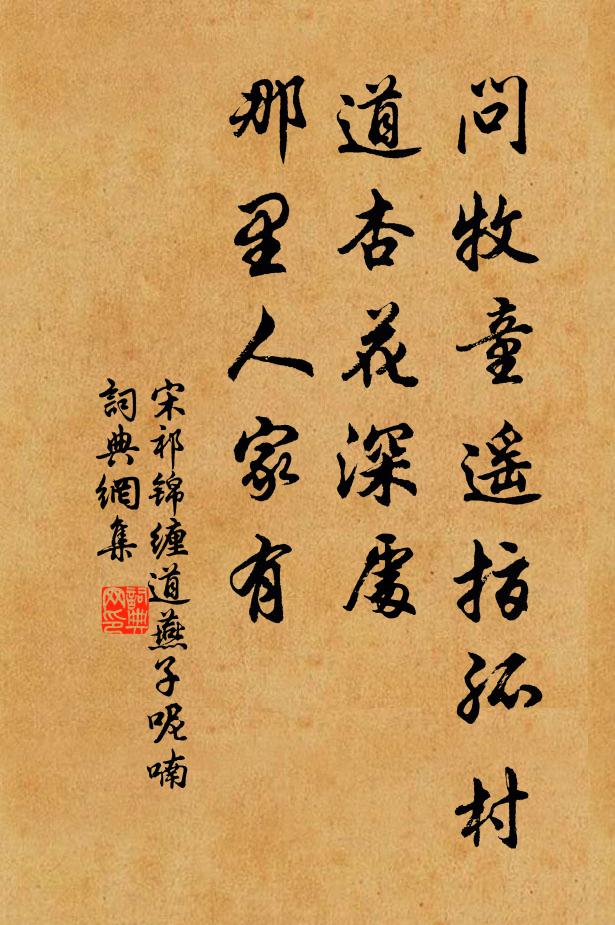 问牧童遥指孤村
道杏花深處
那里人家有
宋祁锦缠道燕子呢喃
詞典網集
詞典
网印